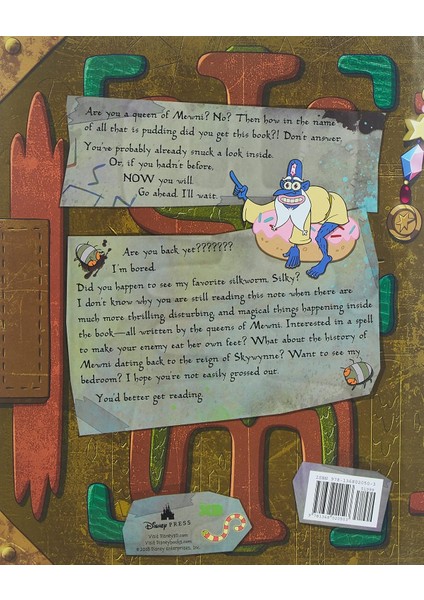 Are you a queen of Mewni? No? Then how in the name
of all that is pudding did you get this book?! Don't answer.
You've probably already snuck a look inside.
Or, if you hadn't before,
NOW you will.
Go ahead. I'll wait.
Are you back yet???????
I'm bored.
Did you happen to see my favorite silkworm, Silky?
I don't know why you are still reading this note when there are
much more thrilling, disturbing and magical things happening inside
the book—all written by the queens of Mewni. Interested in a spell
to make your enemy eat her own feet? What about the history of
Mewni dating back to the reign of Skywynne? Want to see my
bedroom? I hope you're not easily grossed out.
You'd better get reading.
Disney PRESS
Visit DisneyXD.com
Visit disneybooks.com
©2018 Disney Enterprises, Inc.